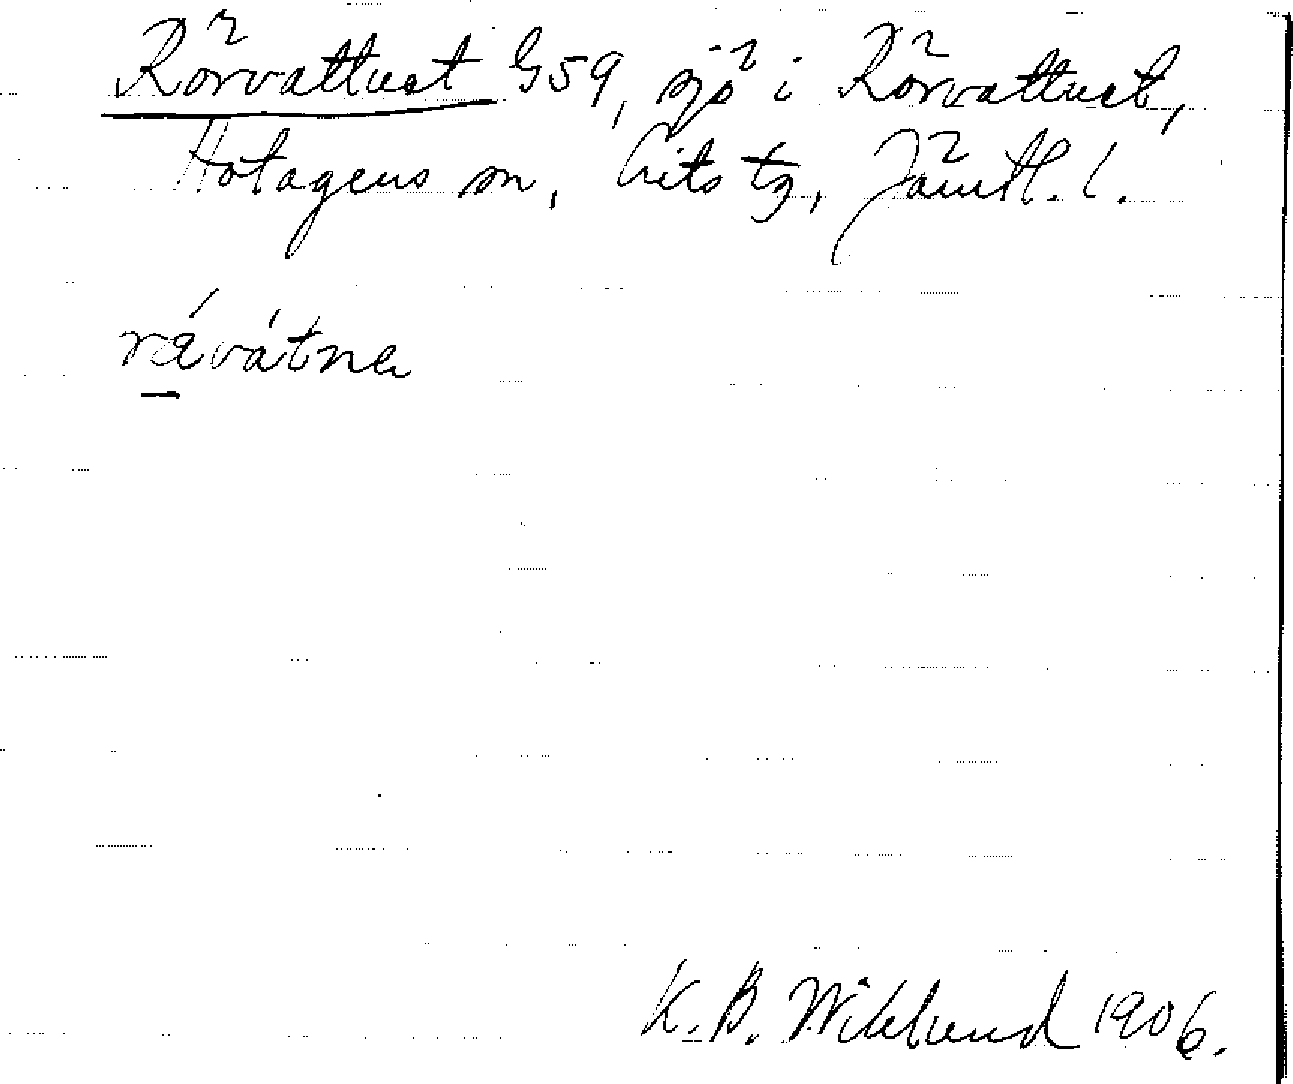 Rörvattnet G59, sjö i Rörvattnet,
Hotagens sn, Lits tg, Jämtl. l.
rávátna
K. B. Wiklund 1906.